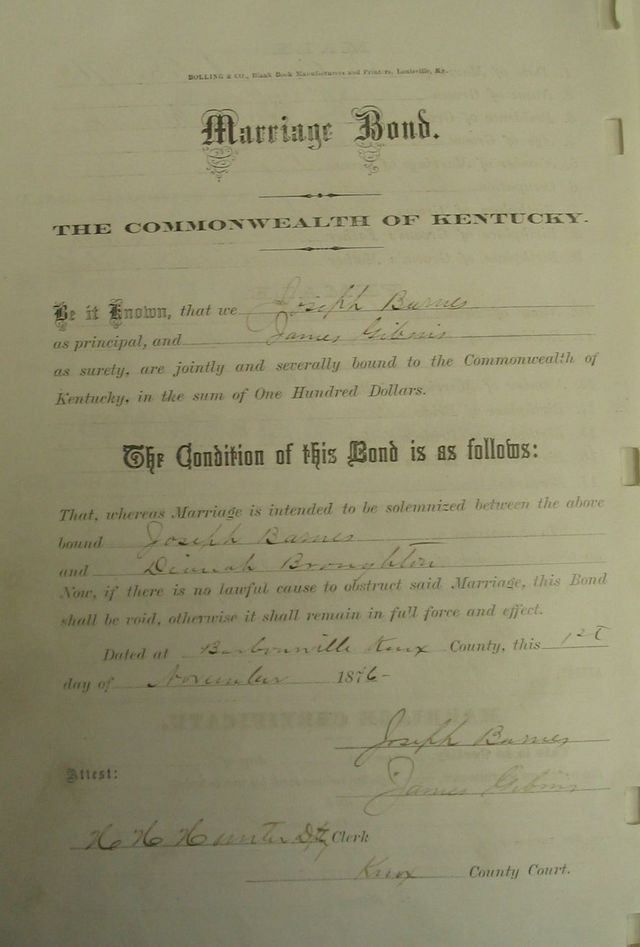 BOLLING & CO., Blank Book Manufacturers and Printers, Louisville, Ky.
Marriage Bond.
THE COMMONWEALTH OF KENTUCKY.
Be it Known, that we Joseph Barnes
as principal, and James Gibins
as surety, are jointly and severally bound to the Commonwealth of
Kentucky, in the sum of One Hundred Dollars.
The Condition of this Bond is as follows:
That, whereas Marriage is intended to be solemnized between the above
bound Joseph Barnes
and Dianah Broughton
Now, if there is no lawful cause to obstruct said Marriage, this Bond
shall be void, otherwise it shall remain in full force and effect.
Dated at Barbourville Knox County, this 1st
day of November 1876-
Joseph Barnes
Attest:
James Gibins
H H Hunter Dty Clerk
Knox County Court.